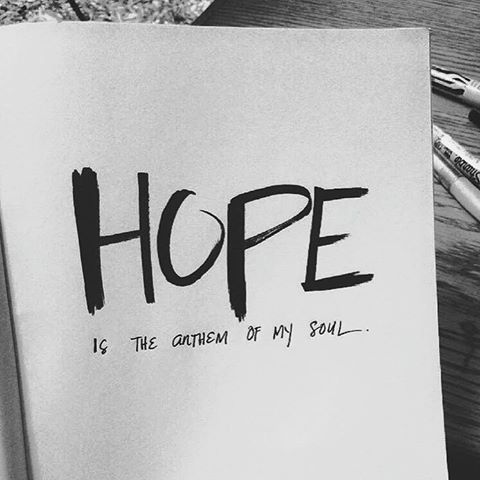 HOPE
IS THE anTHEM OF MY SOUL.